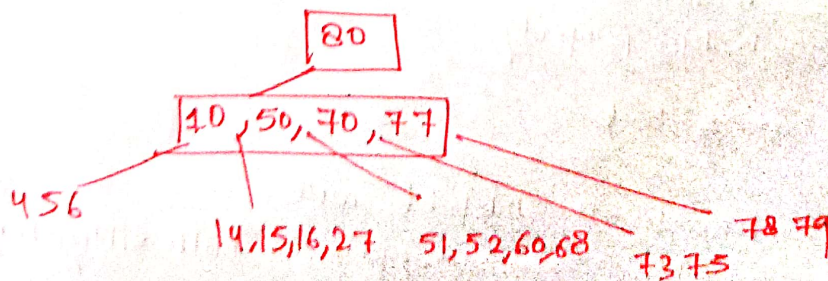 80
10, 50, 70, 77
4 5 6
14, 15, 16, 27
51, 52, 60, 68
73 75
78 79